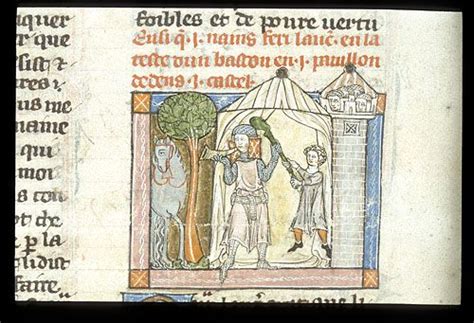 iquer
er que
sist ⁊
res ⁊
us me
name
qui
moi
ot che
p̱ la
lidist
faire
foibles et de poure uertu
Ensi q̃ .i. nains feri lanc̃. en la
teste dun baston en .i. pauillon
dedens .i. castel